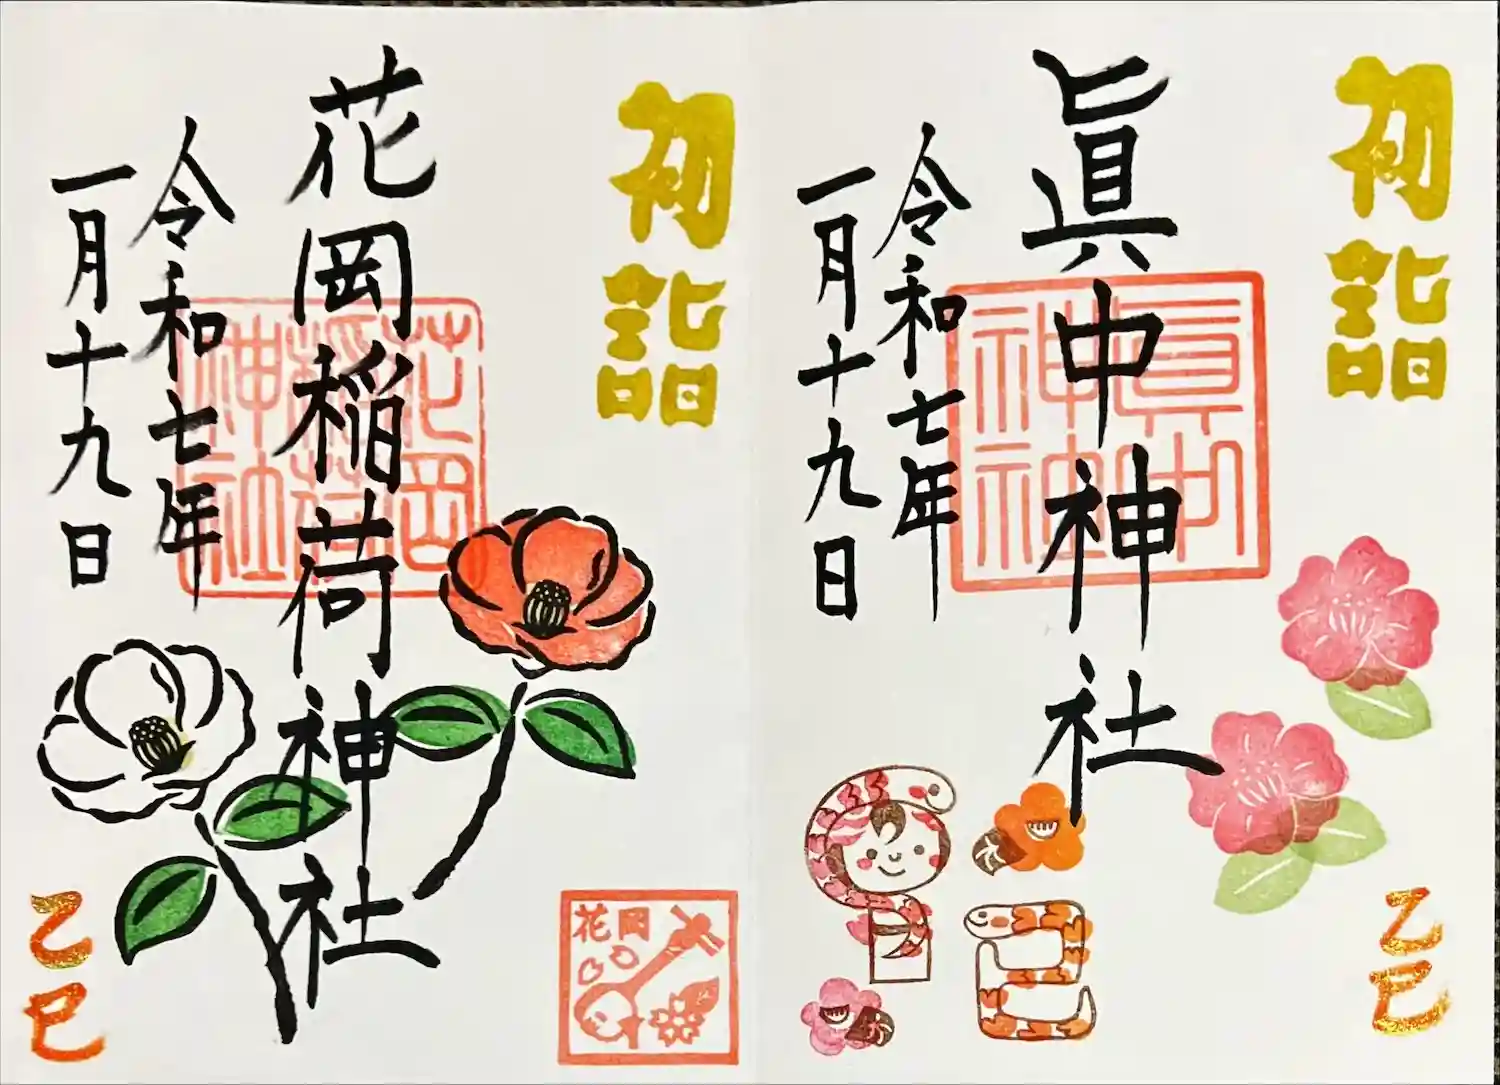 初詣
眞中神社
眞中
神社
令和七年
一月十九日
乙巳
初詣
花岡稲荷神社
花岡
稲荷
神社
令和七年
一月十九日
乙巳
花岡